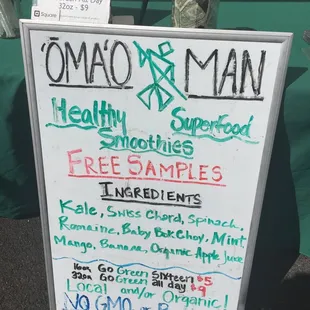 32oz - $9
Square
'ŌMA'O MAN
Healthy Superfood
Smoothies
FREE SAMPLES
INGREDIENTS
Kale, Swiss Chord, Spinach,
Romaine, Baby Bok Choy, Mint
Mango, Banana, Organic Apple Juice
16oz Go Green Sixteen $5
32oz Go Green all day $9
Local and/or Organic!
NO GMO